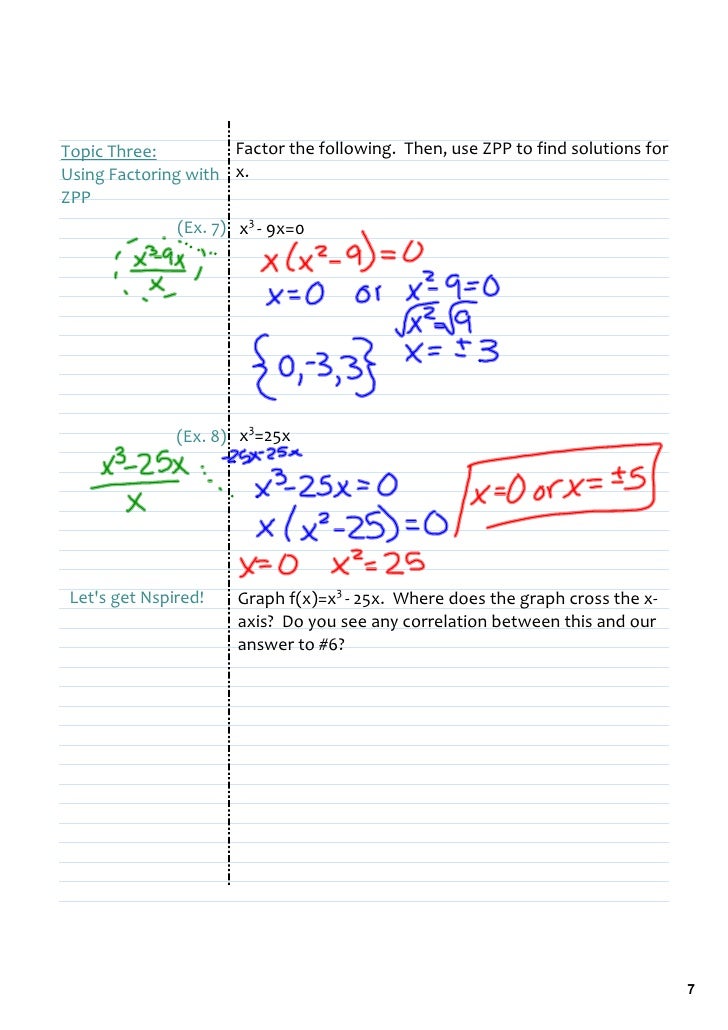 Topic Three:
Using Factoring with
ZPP
Factor the following.  Then, use ZPP to find solutions for
x.
(Ex. 7)
x³ - 9x=0
x³-9x
x
x(x²-9)=0
x=0 or x²-9=0
√x²=√9
x=±3
{0,-3,3}
(Ex. 8)
x³=25x
-25x -25x
x³-25x
x
x³-25x=0
x(x²-25)=0
x=0 x²=25
x=0 or x=±5
Let's get Nspired!
Graph f(x)=x³ - 25x.  Where does the graph cross the x-
axis?  Do you see any correlation between this and our
answer to #6?
7